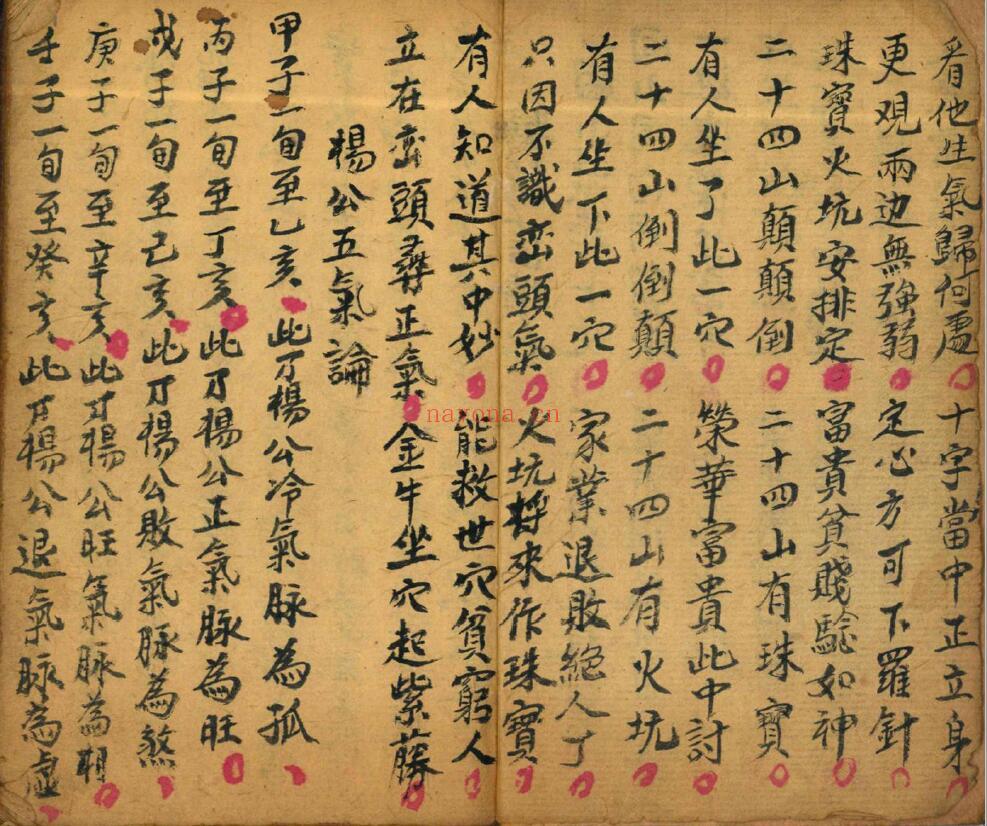 看他生氣歸何處 十字當中正立身
更观兩边無強弱 定心方可下羅針
珠寶火坑安排定 富貴貧賤驗如神
二十四山顛顛倒 二十四山有珠寶
有人坐了此一穴 榮華富貴此中討
二十四山倒倒顛 二十四山有火坑
有人坐下此一穴 家業退敗絕人丁
只因不識巒頭氣 火坑將來作珠寶
有人知道其中妙 能救世穴貧窮人
立在巒頭尋正氣 金牛坐穴起紫藤
楊公五氣論
甲子一旬至乙亥 此乃楊公冷氣脉為孤
丙子一旬至丁亥 此乃楊公正氣脉為旺
戊子一旬至己亥 此乃楊公敗氣脉為煞
庚子一旬至辛亥 此乃楊公旺氣脉為相
壬子一旬至癸亥 此乃楊公退氣脉為虛
naxona.cn